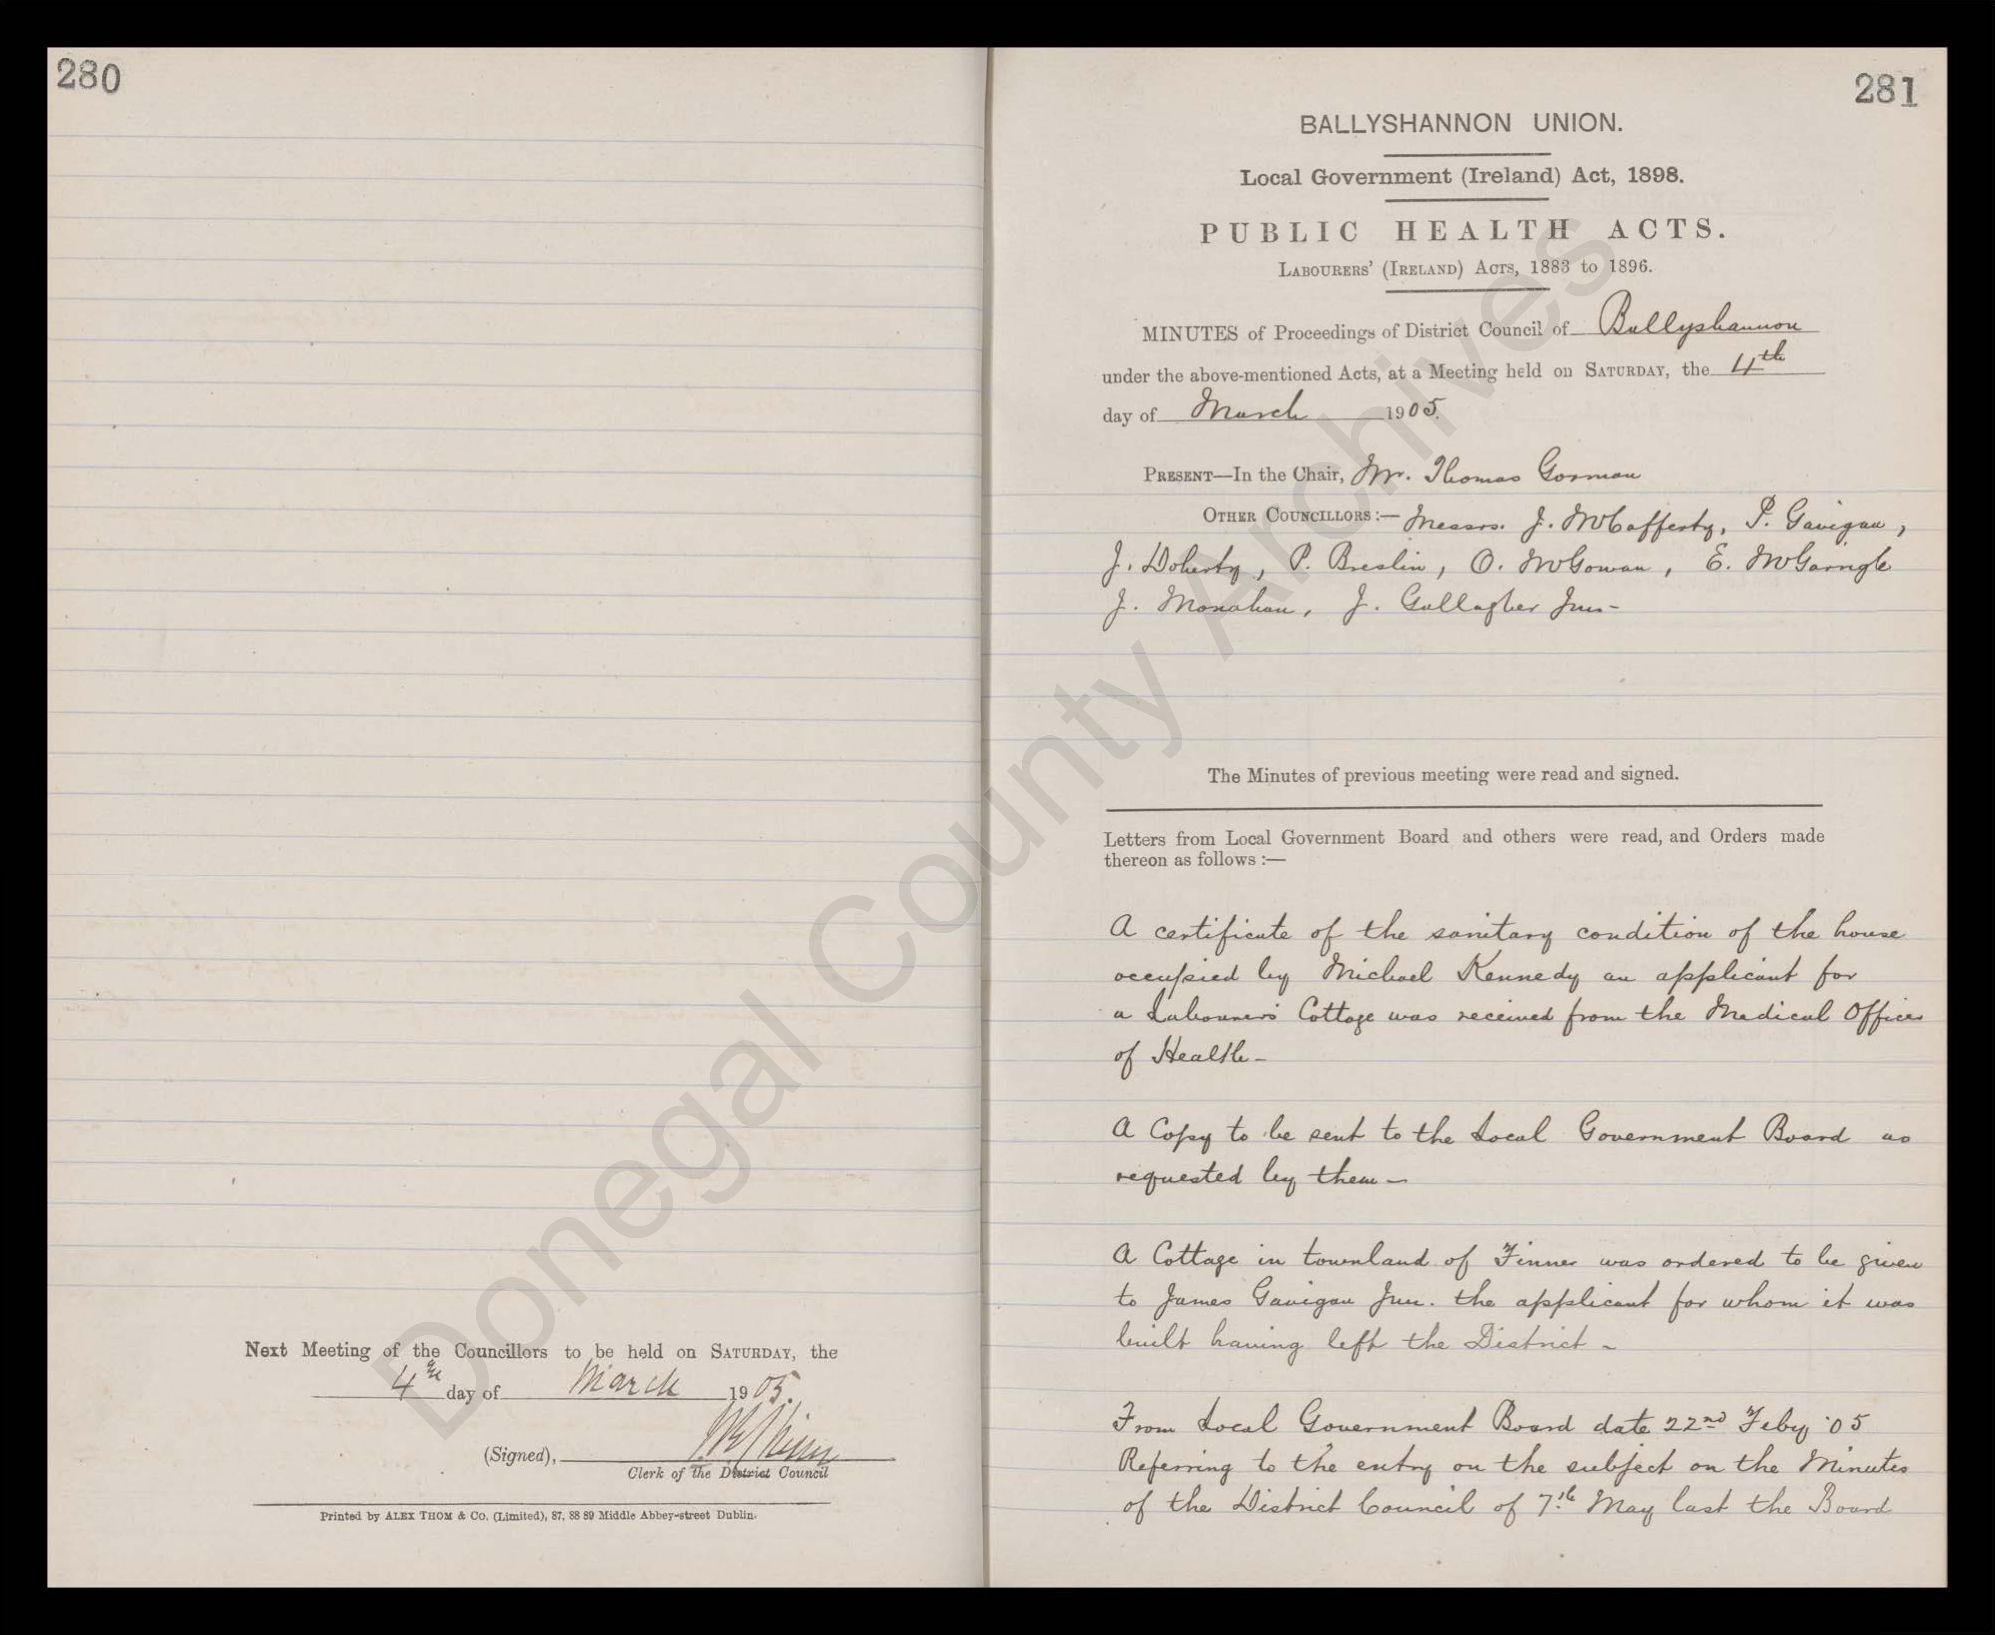 280
Next Meeting of the Councillors to be held on SATURDAY, the
4th day of March 1905.
(Signed),
Clerk of the District Council
Printed by ALEX THOM & Co. (Limited), 87, 88 89 Middle Abbey-street Dublin.
281
BALLYSHANNON UNION.
Local Government (Ireland) Act, 1898.
PUBLIC HEALTH ACTS.
LABOURERS' (IRELAND) ACTS, 1883 to 1896.
MINUTES of Proceedings of District Council of Ballyshannon
under the above-mentioned Acts, at a Meeting held on SATURDAY, the 4th
day of March 1905.
PRESENT—In the Chair, Mr. Thomas Gorman
OTHER COUNCILLORS:— Messrs. J. McCafferty, P. Gavigan,
J. Doherty, P. Breslin, O. McGowan, E. McGarrigle
J. Monahan, J. Gallagher Jun-
The Minutes of previous meeting were read and signed.
Letters from Local Government Board and others were read, and Orders made
thereon as follows :—
A certificate of the sanitary condition of the house
occupied by Michael Kennedy an applicant for
a Labourers' Cottage was received from the Medical Officer
of Health-
A Copy to be sent to the Local Government Board as
requested by them-
A Cottage in townland of Finner was ordered to be given
to James Gavigan Jun. the applicant for whom it was
built having left the District -
From Local Government Board date 22nd Feby '05
Referring to the entry on the subject on the Minutes
of the District Council of 7th May last the Board
Donegal County Archives